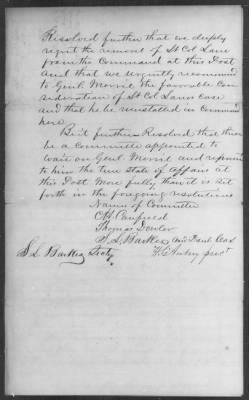 Resolved further that we deeply
regret the removal of Lt Col Lane
from the Command at this Post
and that we urgently recommend
to Genl Morril the favorable Con
sideration of Lt Col Lanes case
and that he be reinstated in Command
here.
Be it further Resolved that there
be a Committee appointed to
wait on Genl Morril and represent
to him the true state of affairs at
this Post More fully than it is set
forth in the foregoing resolutions
Names of Committee
C H Canfield
Thomas
S. L. Barkes and Danl
S. L. Barkes Secty